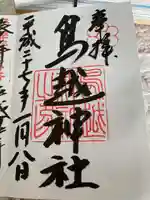 奉拝
鳥越神社
平成二十七年一月八日